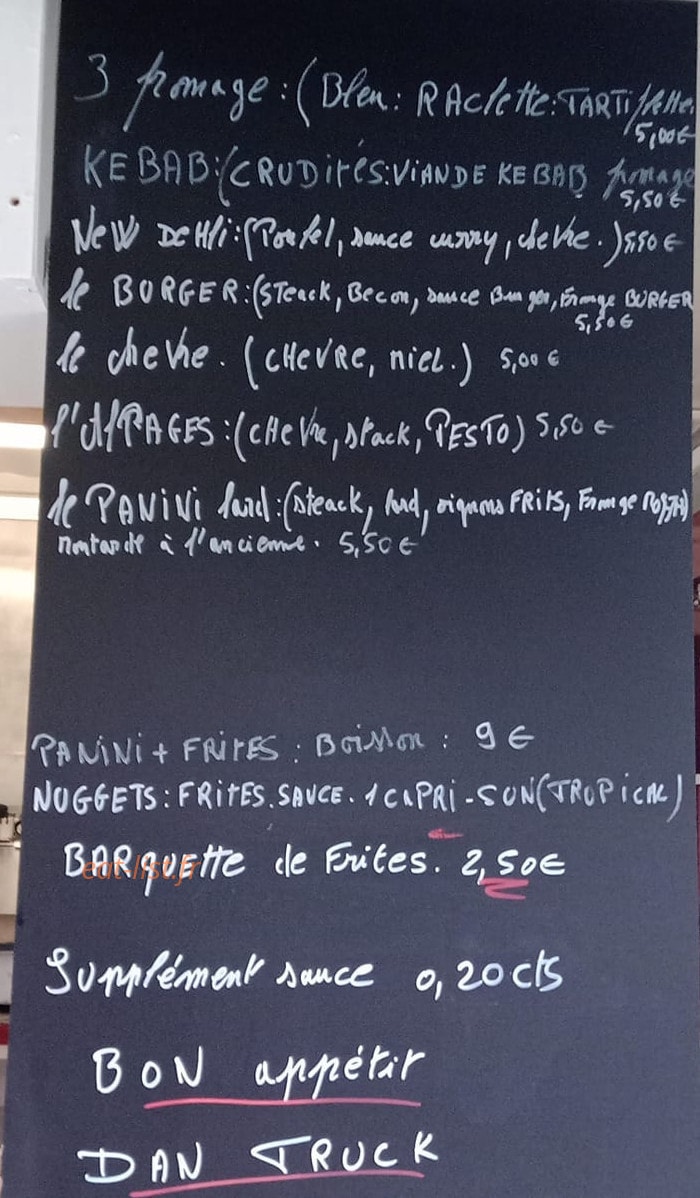 3 fromage : (Bleu : RAclette : TARTiflette.
5,00€
KEBAB : (CRUDités : ViANDE KEBAB fromage
5,50€
New DeHli : (Poulet, sauce curry, chevre.) 5,50€
le BURGER : (STeack, Becon, sauce Burger, Fromage BURGER
5,50€
le chevre. (CHeVRe, MieL.) 5,00€
l'AlPAGES : (CHeVre, steack, PESTO) 5,50€
le PANiNi lard : (steack, lard, oignons FRits, Fromage
moutarde à l'ancienne. 5,50€
PANiNi + FRiTES : Boisson : 9€
NUGGETS : FRiTES. SAUCE. 1 CAPRi-SUN (TROPiCAL)
BARquette de Frites. 2,50€
eat-list.fr
Supplément sauce 0,20cts
BON appétit
DAN TRUCK